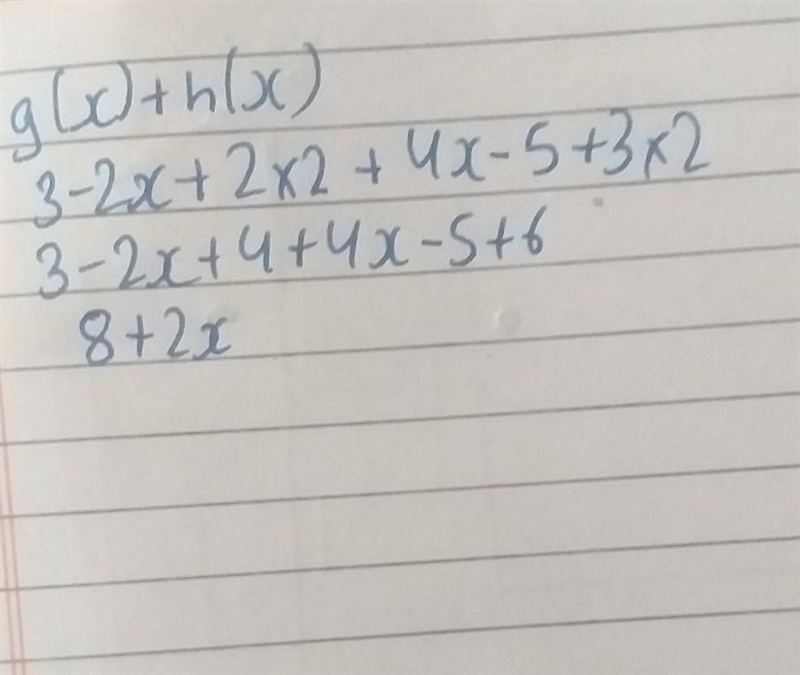 g(x)+h(x)
3-2x+2×2+4x-5+3×2
3-2x+4+4x-5+6
8+2x